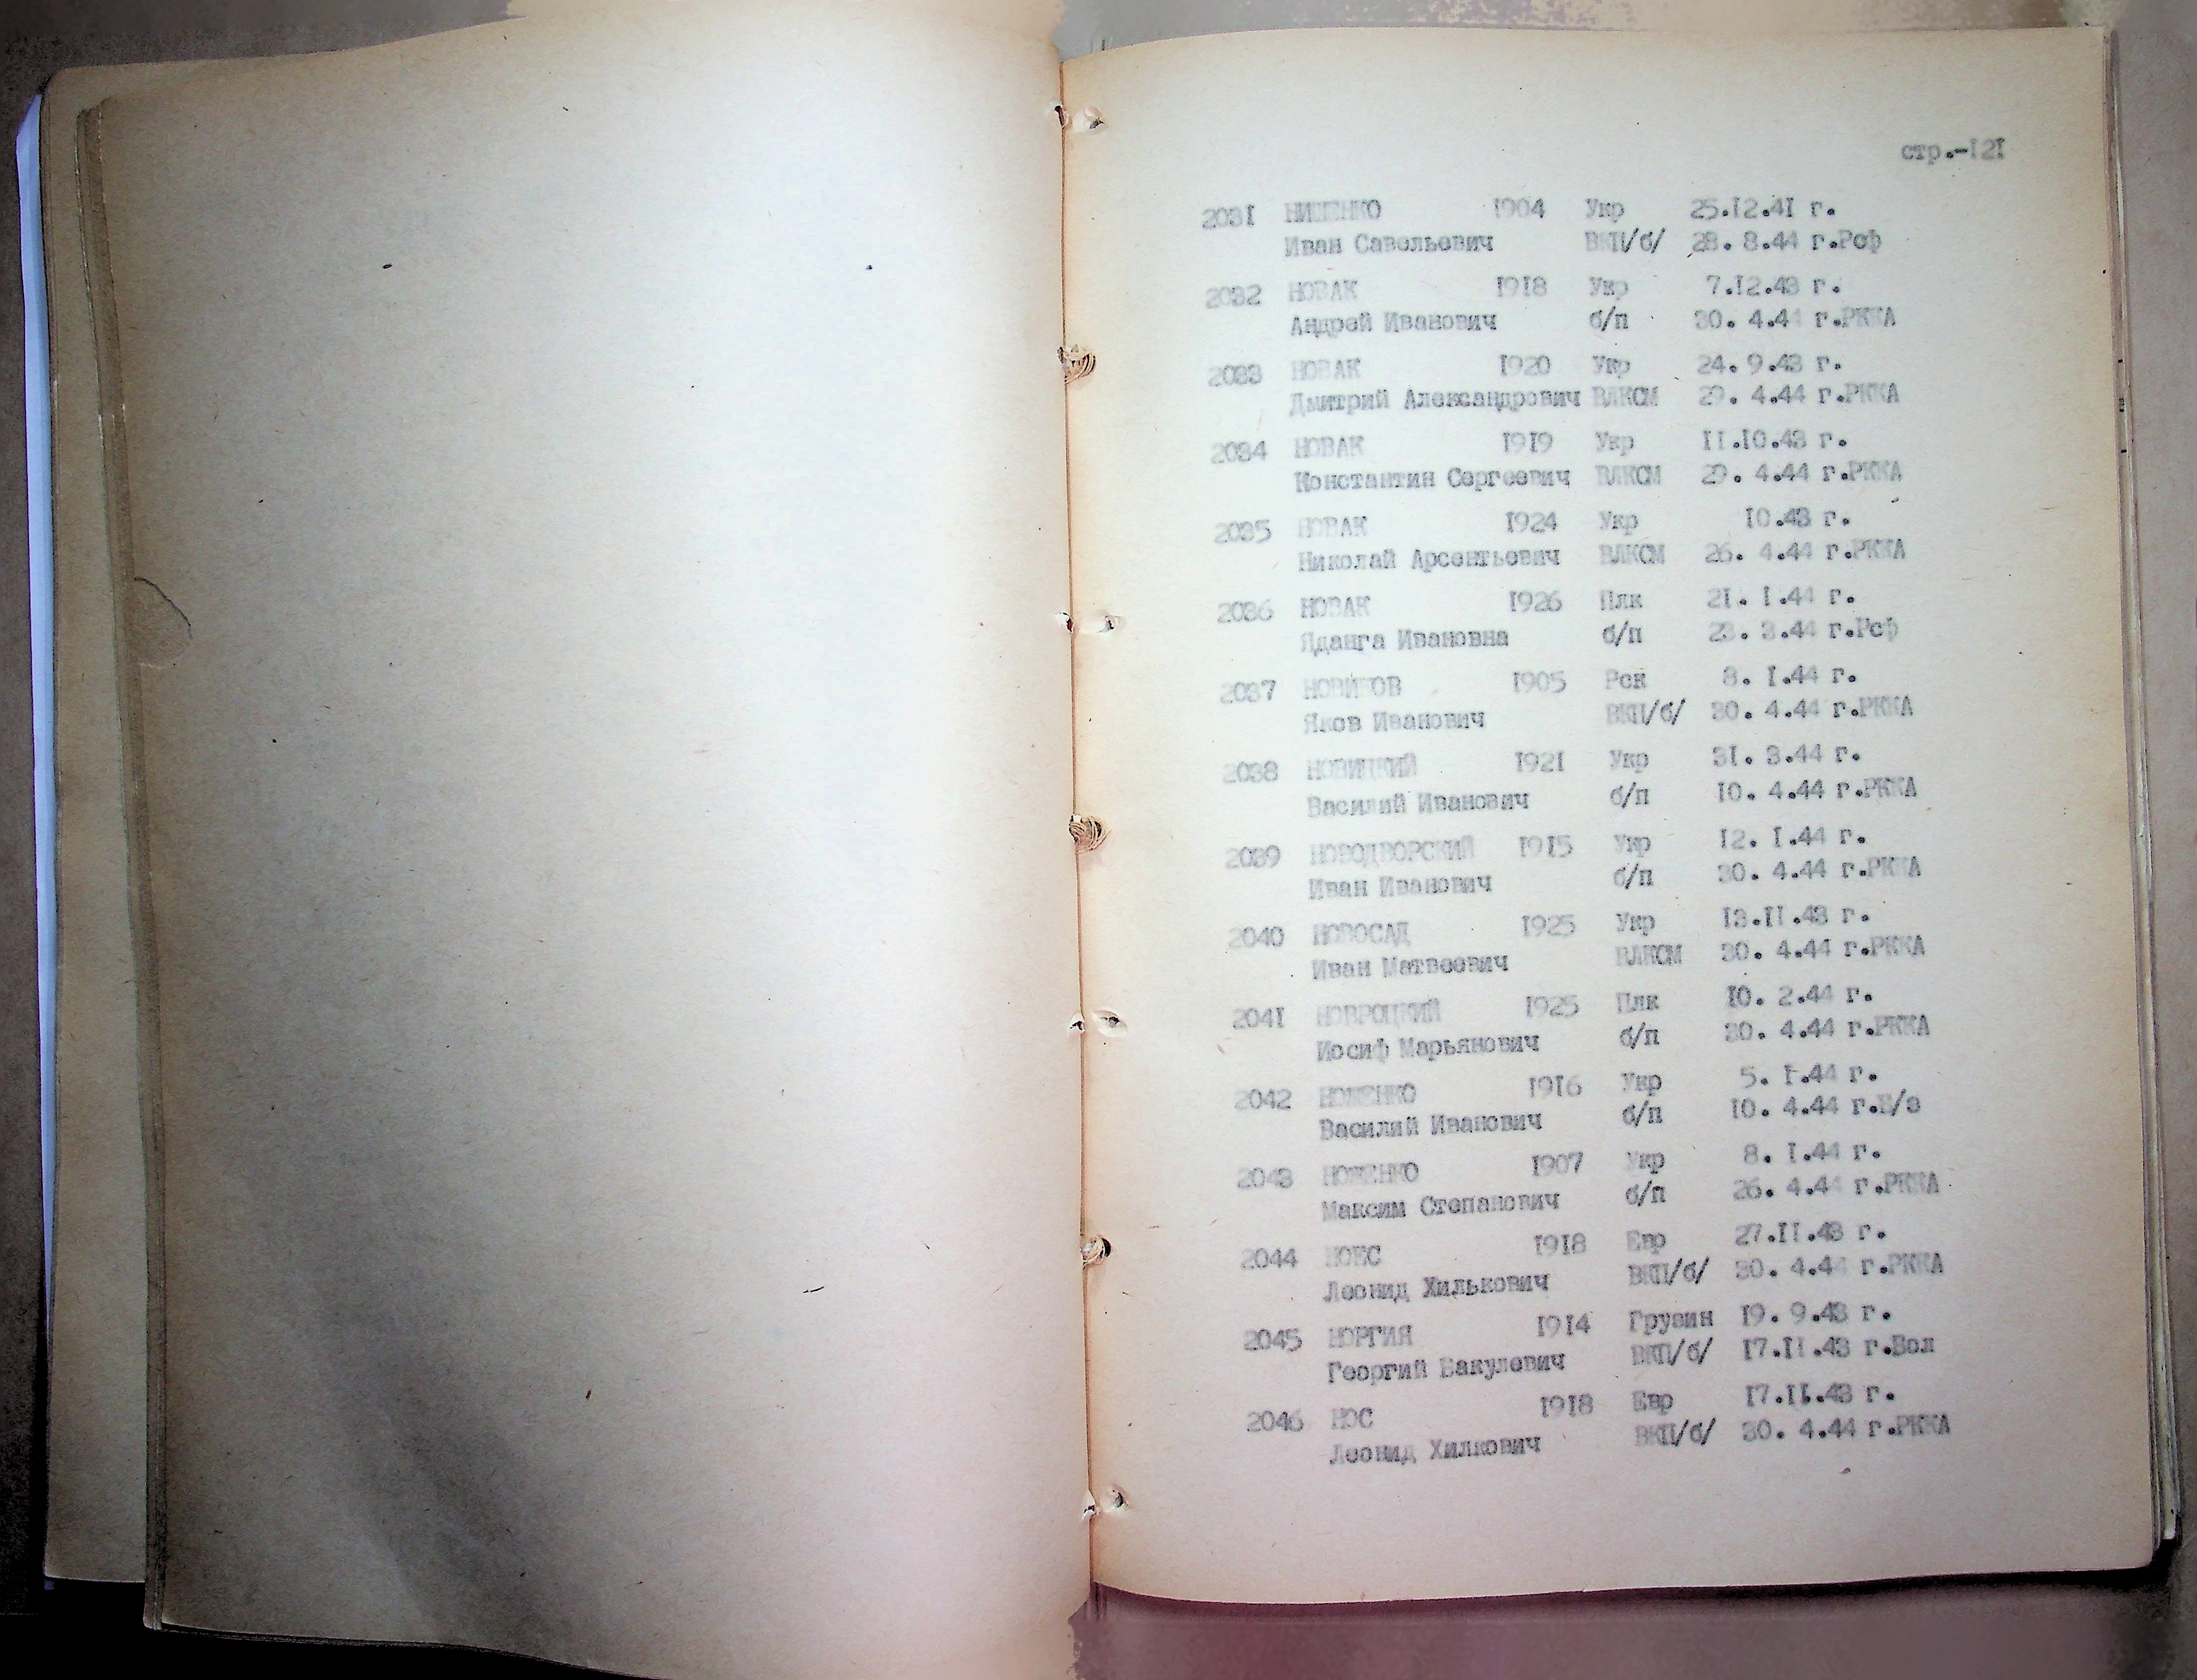 стр.-121
2031 НИЖЕНКО 1904 Укр 25.12.41 г.
Иван Савельевич ВКП/б/ 28. 8.44 г.Рсф
2032 НОВАК 1918 Укр 7.12.43 г.
Андрей Иванович б/п 30. 4.44 г.РККА
2033 НОВАК 1920 Укр 24. 9.43 г.
Дмитрий Александрович ВЛКСМ 29. 4.44 г.РККА
2034 НОВАК 1919 Укр 11.10.43 г.
Константин Сергеевич ВЛКСМ 29. 4.44 г.РККА
2035 НОВАК 1924 Укр 10.43 г.
Николай Арсентьевич ВЛКСМ 26. 4.44 г.РККА
2036 НОВАК 1926 Плк 21. 1.44 г.
Ядвига Ивановна б/п 23. 3.44 г.Рсф
2037 НОВИКОВ 1905 Рск 8. 1.44 г.
Яков Иванович ВКП/б/ 30. 4.44 г.РККА
2038 НОВИЦКИЙ 1921 Укр 31. 3.44 г.
Василий Иванович б/п 10. 4.44 г.РККА
2039 НОВОДВОРСКИЙ 1915 Укр 12. 1.44 г.
Иван Иванович б/п 30. 4.44 г.РККА
2040 НОВОСАД 1925 Укр 13.11.43 г.
Иван Матвеевич ВЛКСМ 30. 4.44 г.РККА
2041 НОВРОЦКИЙ 1925 Плк 10. 2.44 г.
Иосиф Марьянович б/п 30. 4.44 г.РККА
2042 НОЖЕНКО 1916 Укр 5. 1.44 г.
Василий Иванович б/п 10. 4.44 г.Б/з
2043 НОЖЕНКО 1907 Укр 8. 1.44 г.
Максим Степанович б/п 26. 4.44 г.РККА
2044 НОЕС 1918 Евр 27.11.43 г.
Леонид Хилькович ВКП/б/ 30. 4.44 г.РККА
2045 НОРГИЯ 1914 Грузин 19. 9.43 г.
Георгий Вакулевич ВКП/б/ 17.11.43 г.Бол
2046 НОС 1918 Евр 17.11.43 г.
Леонид Хилкович ВКП/б/ 30. 4.44 г.РККА